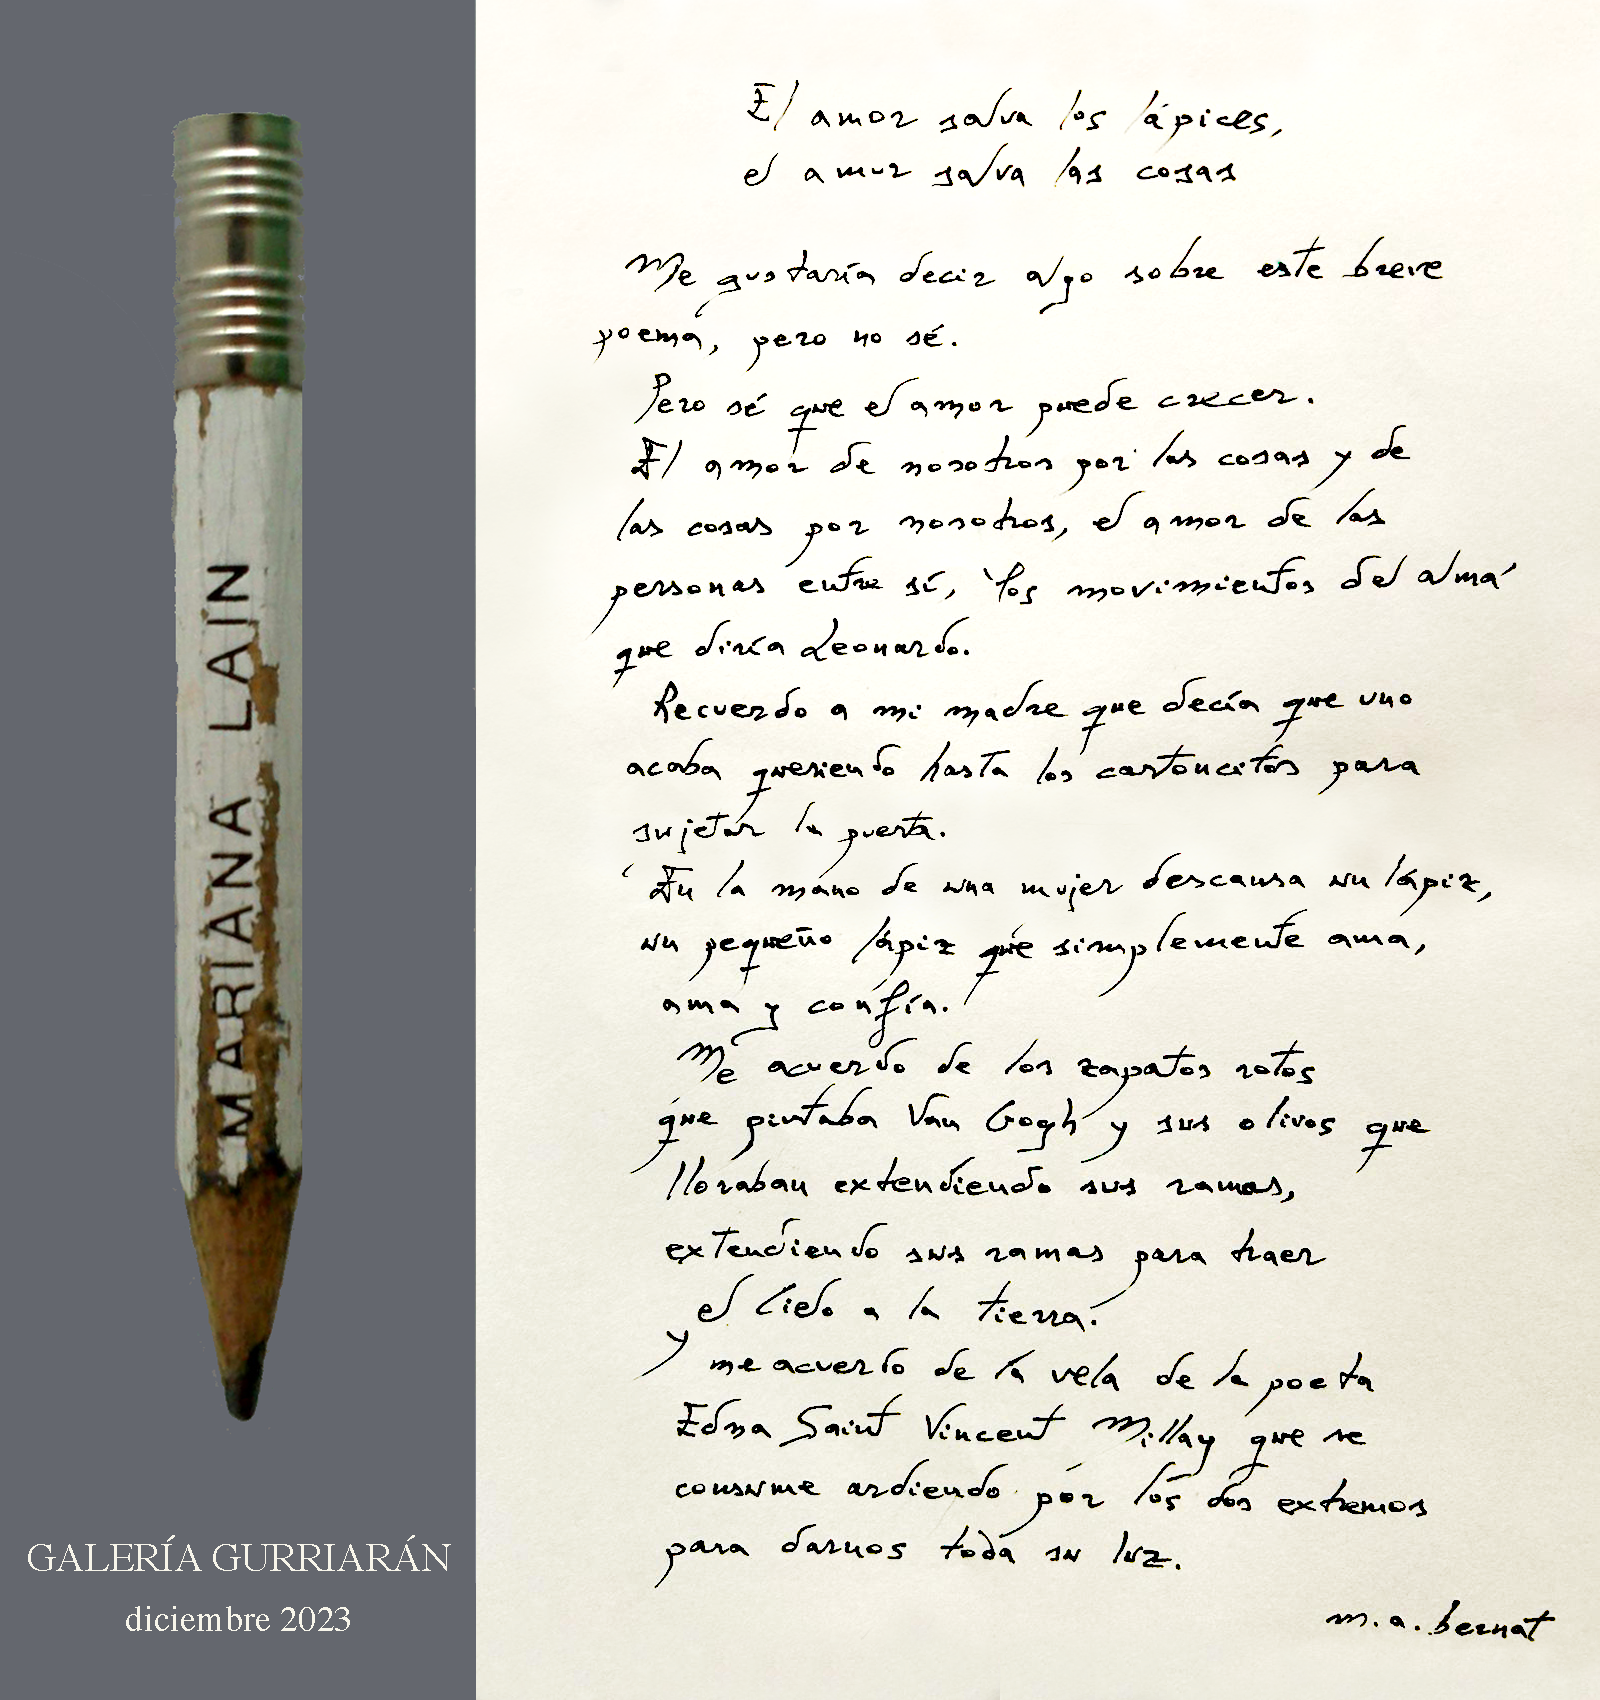 MARIANA LAIN
GALERÍA GURRIARÁN
diciembre 2023
El amor salva los lápices,
el amor salva las cosas
Me gustaría decir algo sobre este breve
poema, pero no sé.
Pero sé que el amor puede crecer.
El amor de nosotros por las cosas y de
las cosas por nosotros, el amor de las
personas entre sí, los movimientos del alma
que diría Leonardo.
Recuerdo a mi madre que decía que uno
acaba queriendo hasta los cartoncitos para
sujetar la puerta.
En la mano de una mujer descansa un lápiz,
un pequeño lápiz que simplemente ama,
ama y confía.
Me acuerdo de los zapatos rotos
que pintaba Van Gogh y sus olivos que
lloraban extendiendo sus ramas,
extendiendo sus ramas para traer
el cielo a la tierra.
y me acuerdo de la vela de la poeta
Edna Saint Vincent Millay que se
consume ardiendo por los dos extremos
para darnos toda su luz.
m.a. bernat